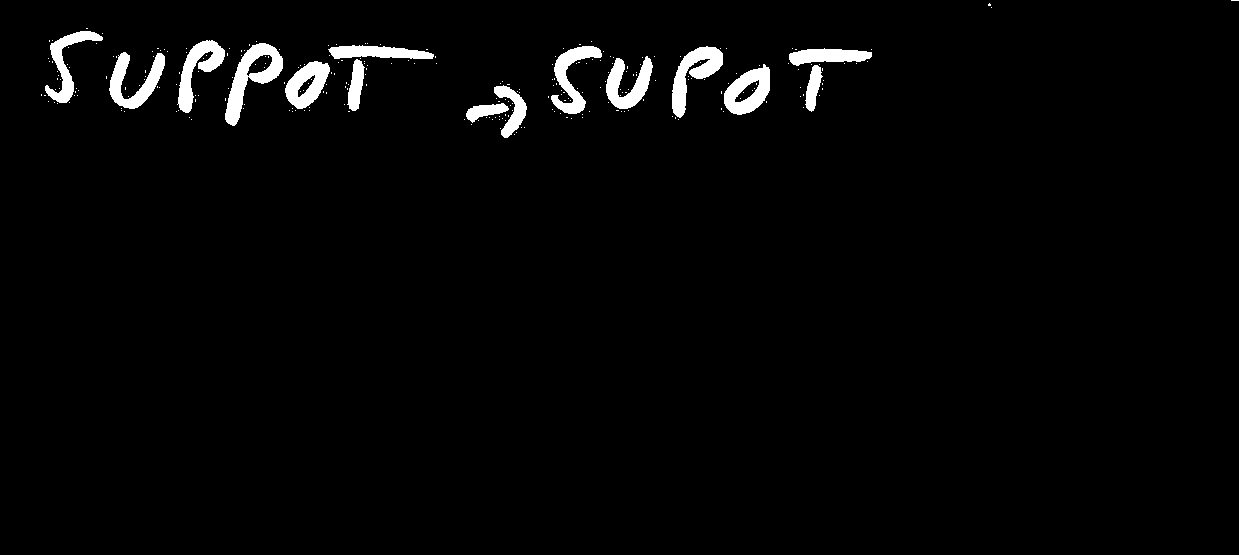 SUPPOT → SUPOT